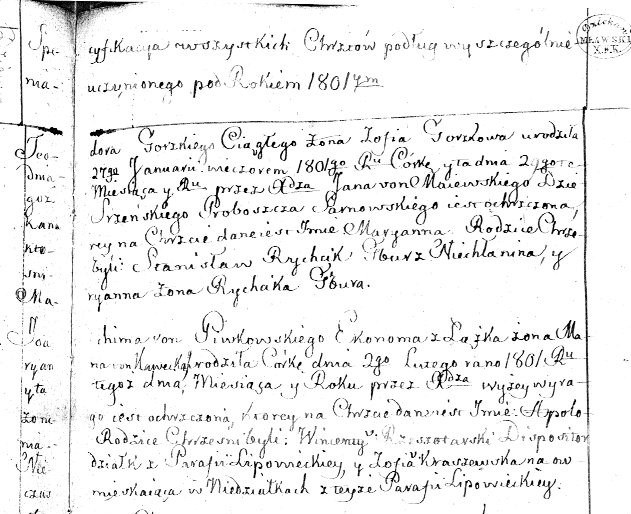 Spe- cyfikacya wszystkich Chrztów podług wyszczególnie
nia- uczynionego pod Rokiem 1801ym
Teo- dora Gorzkiego Ciągłego żona Zofia Gorzkowa urodziła
dnia 27go Januarii wieczorem 1801go Ru Córkę, y ta dnia 29go te-
goz Miesiąca y Ru przez Xdza Jana von Maiewskiego Dzie
Kana Srzenskiego Proboszcza Sarnowskiego iest ochrzczona,
kto- rey na Chrzcie dane iest Imie Maryanna. Rodzice Chrze-
sni byli: Stanisław Rychcik Gbur z Niechłanina, y
Ma- ryanna żona Rychcika Gbura.
Joa- chima von Piwkowskiego Ekonoma z Lążka żona Ma
ryan na von urodziła Córkę dnia 2go Lutego rano 1801 Ru
y ta tegoz dnia, Miesiąca y Roku przez Xdza wyzey wyra-
żone- go iest ochrzczona, ktorey na Chrzcie dane iest Imie: Apolo-
nia- Rodzice Chrzesni byli: Wincenty Rzeszotarski Dispositor
Nie działk z Parafii Lipowieckiey, y Zofia Kraszewska na ow
czas mieskaiąca w Niedziałkach z teyże Parafii Lipowieckiey.